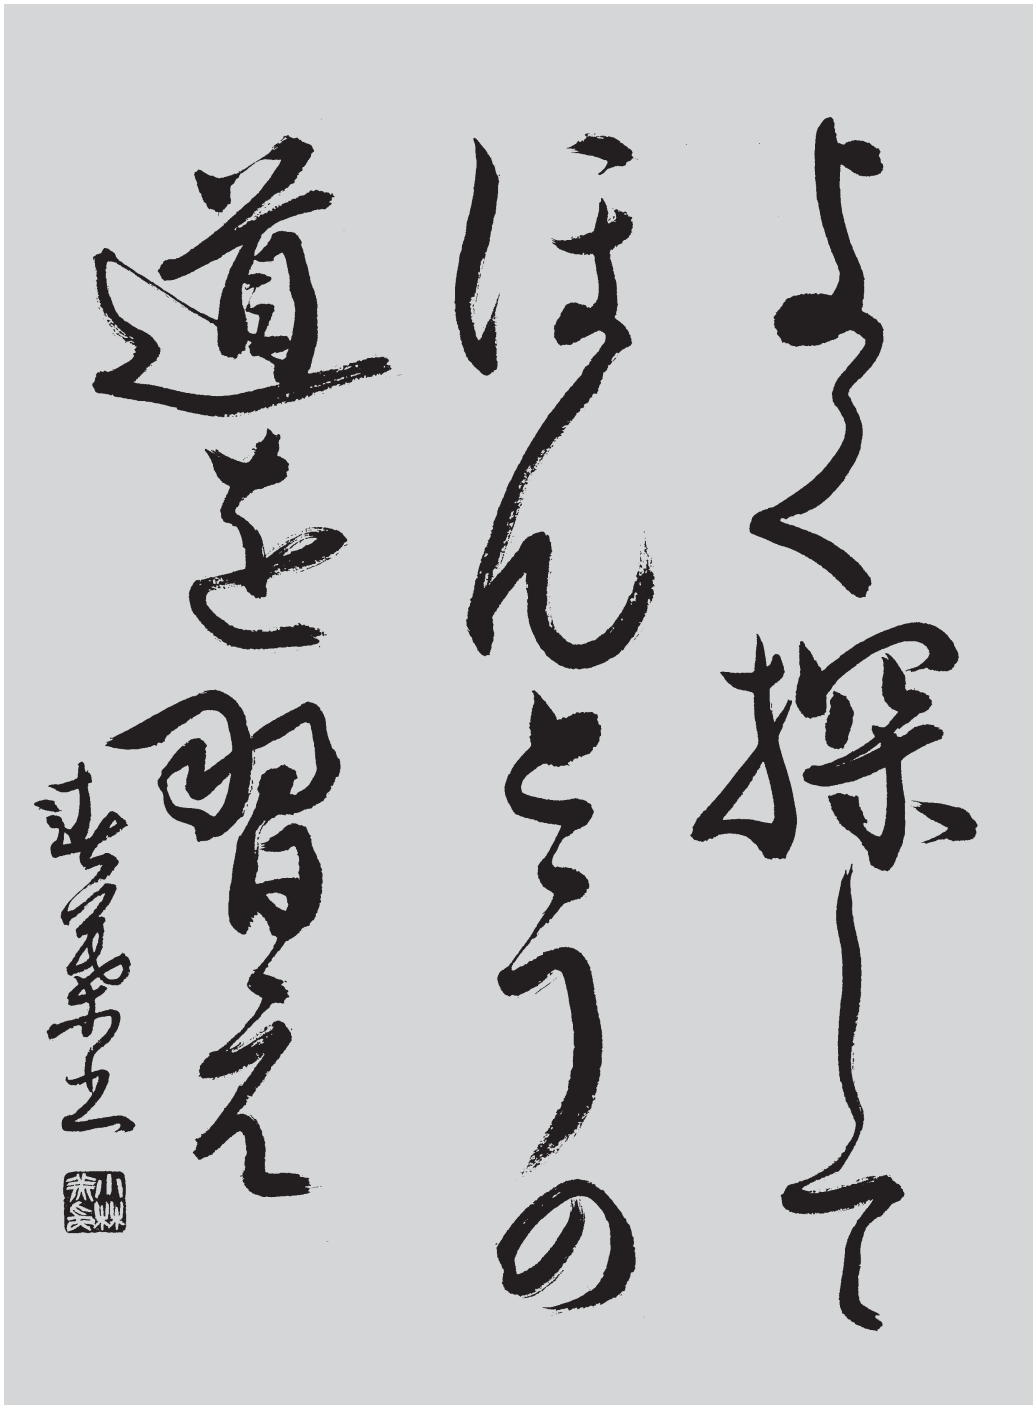 よく探して
ほんとうの
道を習え